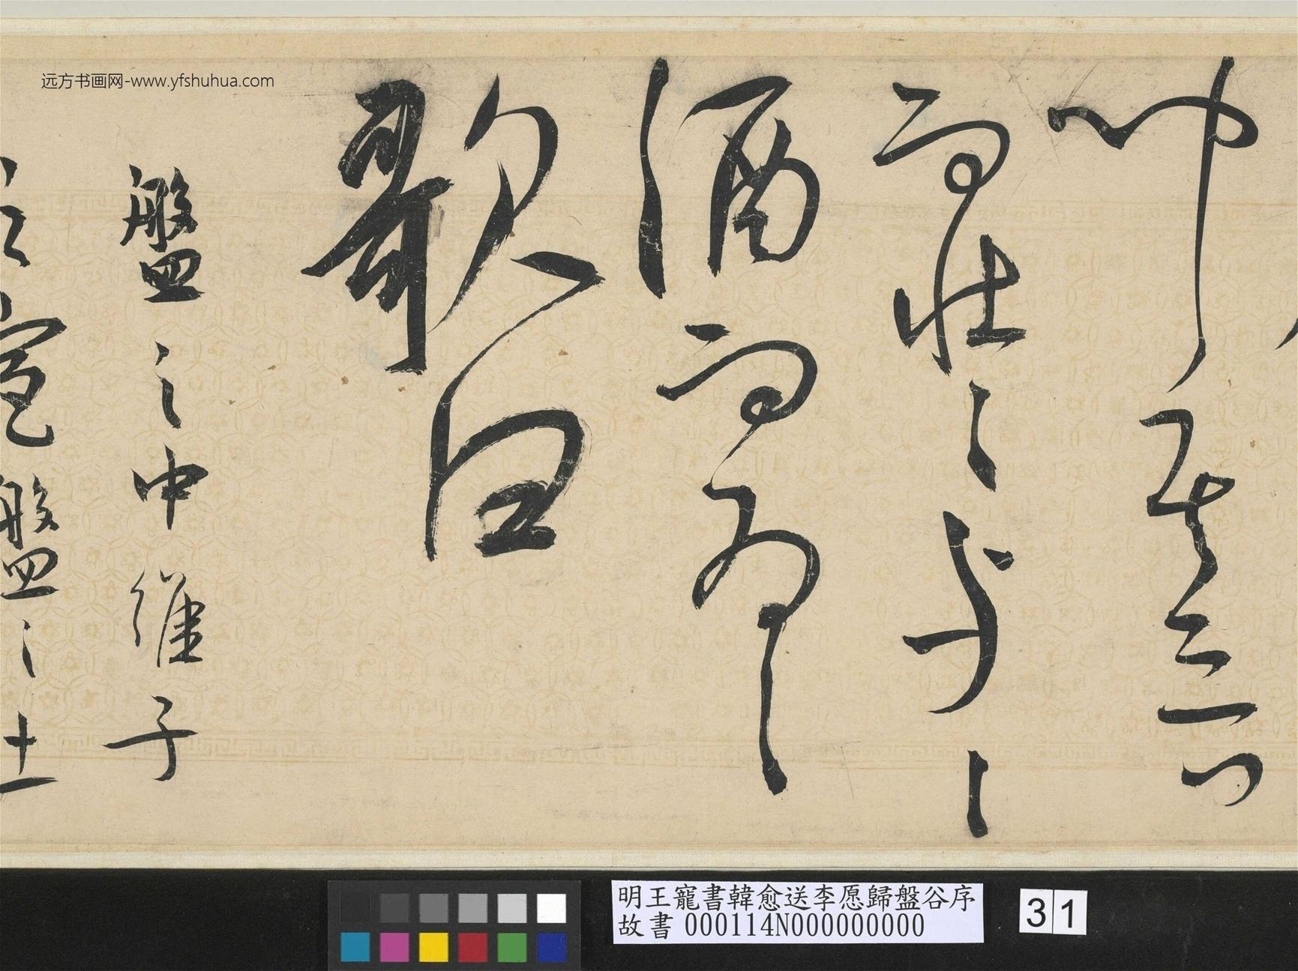 聞其言
而壯之與之
酒而為之
歌曰
盤之中維子
之宮盤之土
远方书画网-www.yfshuhua.com
明王寵書韓愈送李愿歸盤谷序
故書 000114N000000000
31